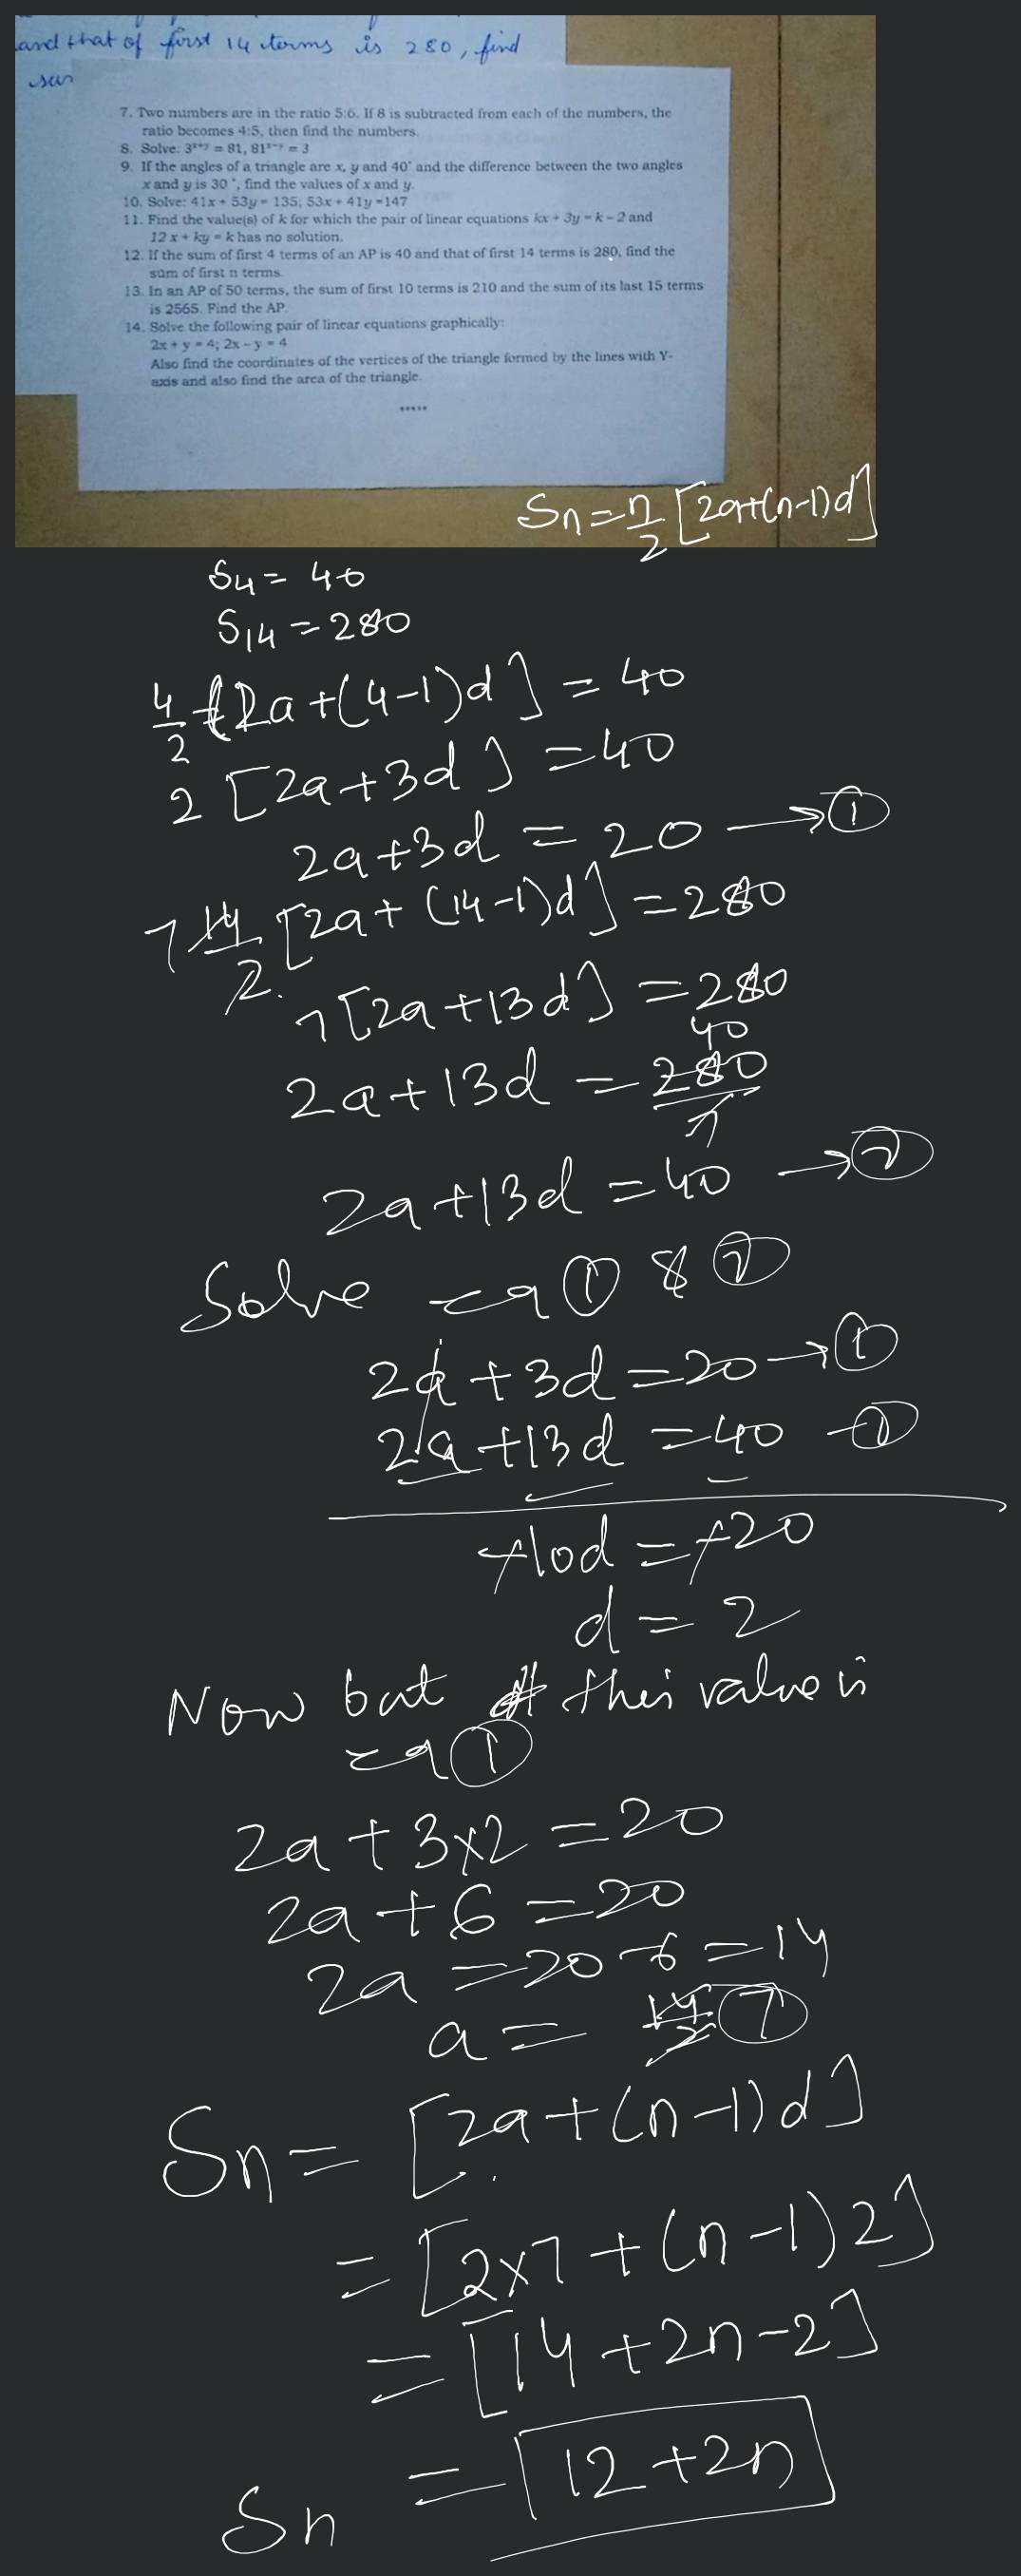 and that of first 14 terms is 280, find
7. Two numbers are in the ratio 5:6. If 8 is subtracted from each of the numbers, the
ratio becomes 4:5, then find the numbers.
8. Solve: 3ˣ⁺ʸ = 81, 81ˣ⁻ʸ = 3
9. If the angles of a triangle are x, y and 40° and the difference between the two angles
x and y is 30°, find the values of x and y.
10. Solve: 41x + 53y = 135; 53x + 41y =147
11. Find the value(s) of k for which the pair of linear equations kx + 3y = k – 2 and
12 x + ky = k has no solution.
12. If the sum of first 4 terms of an AP is 40 and that of first 14 terms is 280, find the
sum of first n terms.
13. In an AP of 50 terms, the sum of first 10 terms is 210 and the sum of its last 15 terms
is 2565. Find the AP.
14. Solve the following pair of linear equations graphically:
2x + y = 4; 2x – y = 4
Also find the coordinates of the vertices of the triangle formed by the lines with Y-
axis and also find the area of the triangle.
*****
Sn = n/2 [2a+(n-1)d]
S4 = 40
S14 = 280
4/2 [2a+(4-1)d] = 40
2 [2a+3d] = 40
2a+3d = 20 → ①
7 14/2 [2a+(14-1)d] = 280
7 [2a+13d] = 280
40
2a+13d = 280/7
2a+13d = 40 → ②
Solve eq ① & ②
2a+3d = 20 → ①
2a+13d = 40 → ②
+10d = +20
d = 2
Now but this value in
eq ①
2a+3×2 = 20
2a+6 = 20
2a = 20-6 = 14
a = 14/2 7
Sn = [2a+(n-1)d]
= [2×7+(n-1)2]
= [14+2n-2]
Sn = [12+2n]